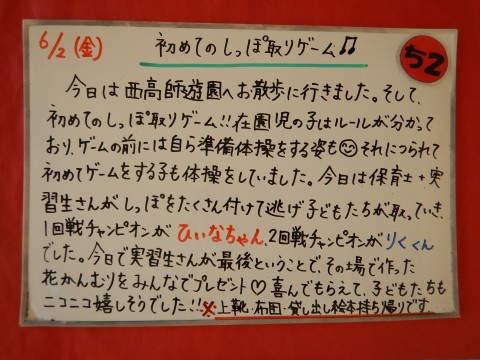 6/2(金) 初めてのしっぽ取りゲーム♫ ち2
今日は西高師遊園へお散歩に行きました。そして、
初めてのしっぽ取りゲーム!!在園児の子はルールが分かって
おり、ゲームの前には自ら準備体操をする姿も😊それにつられて
初めてゲームをする子も体操をしていました。今日は保育士+実
習生さんがしっぽをたくさん付けて逃げ子どもたちが取っていき、
1回戦チャンピオンがひぃなちゃん、2回戦チャンピオンがりくくん
でした。今日で実習生さんが最後ということで、その場で作った
花かんむりをみんなでプレゼント♡喜んでもらえて、子どもたちも
ニコニコ嬉しそうでした!!※上靴・布団・貸し出し絵本持ち帰りです。